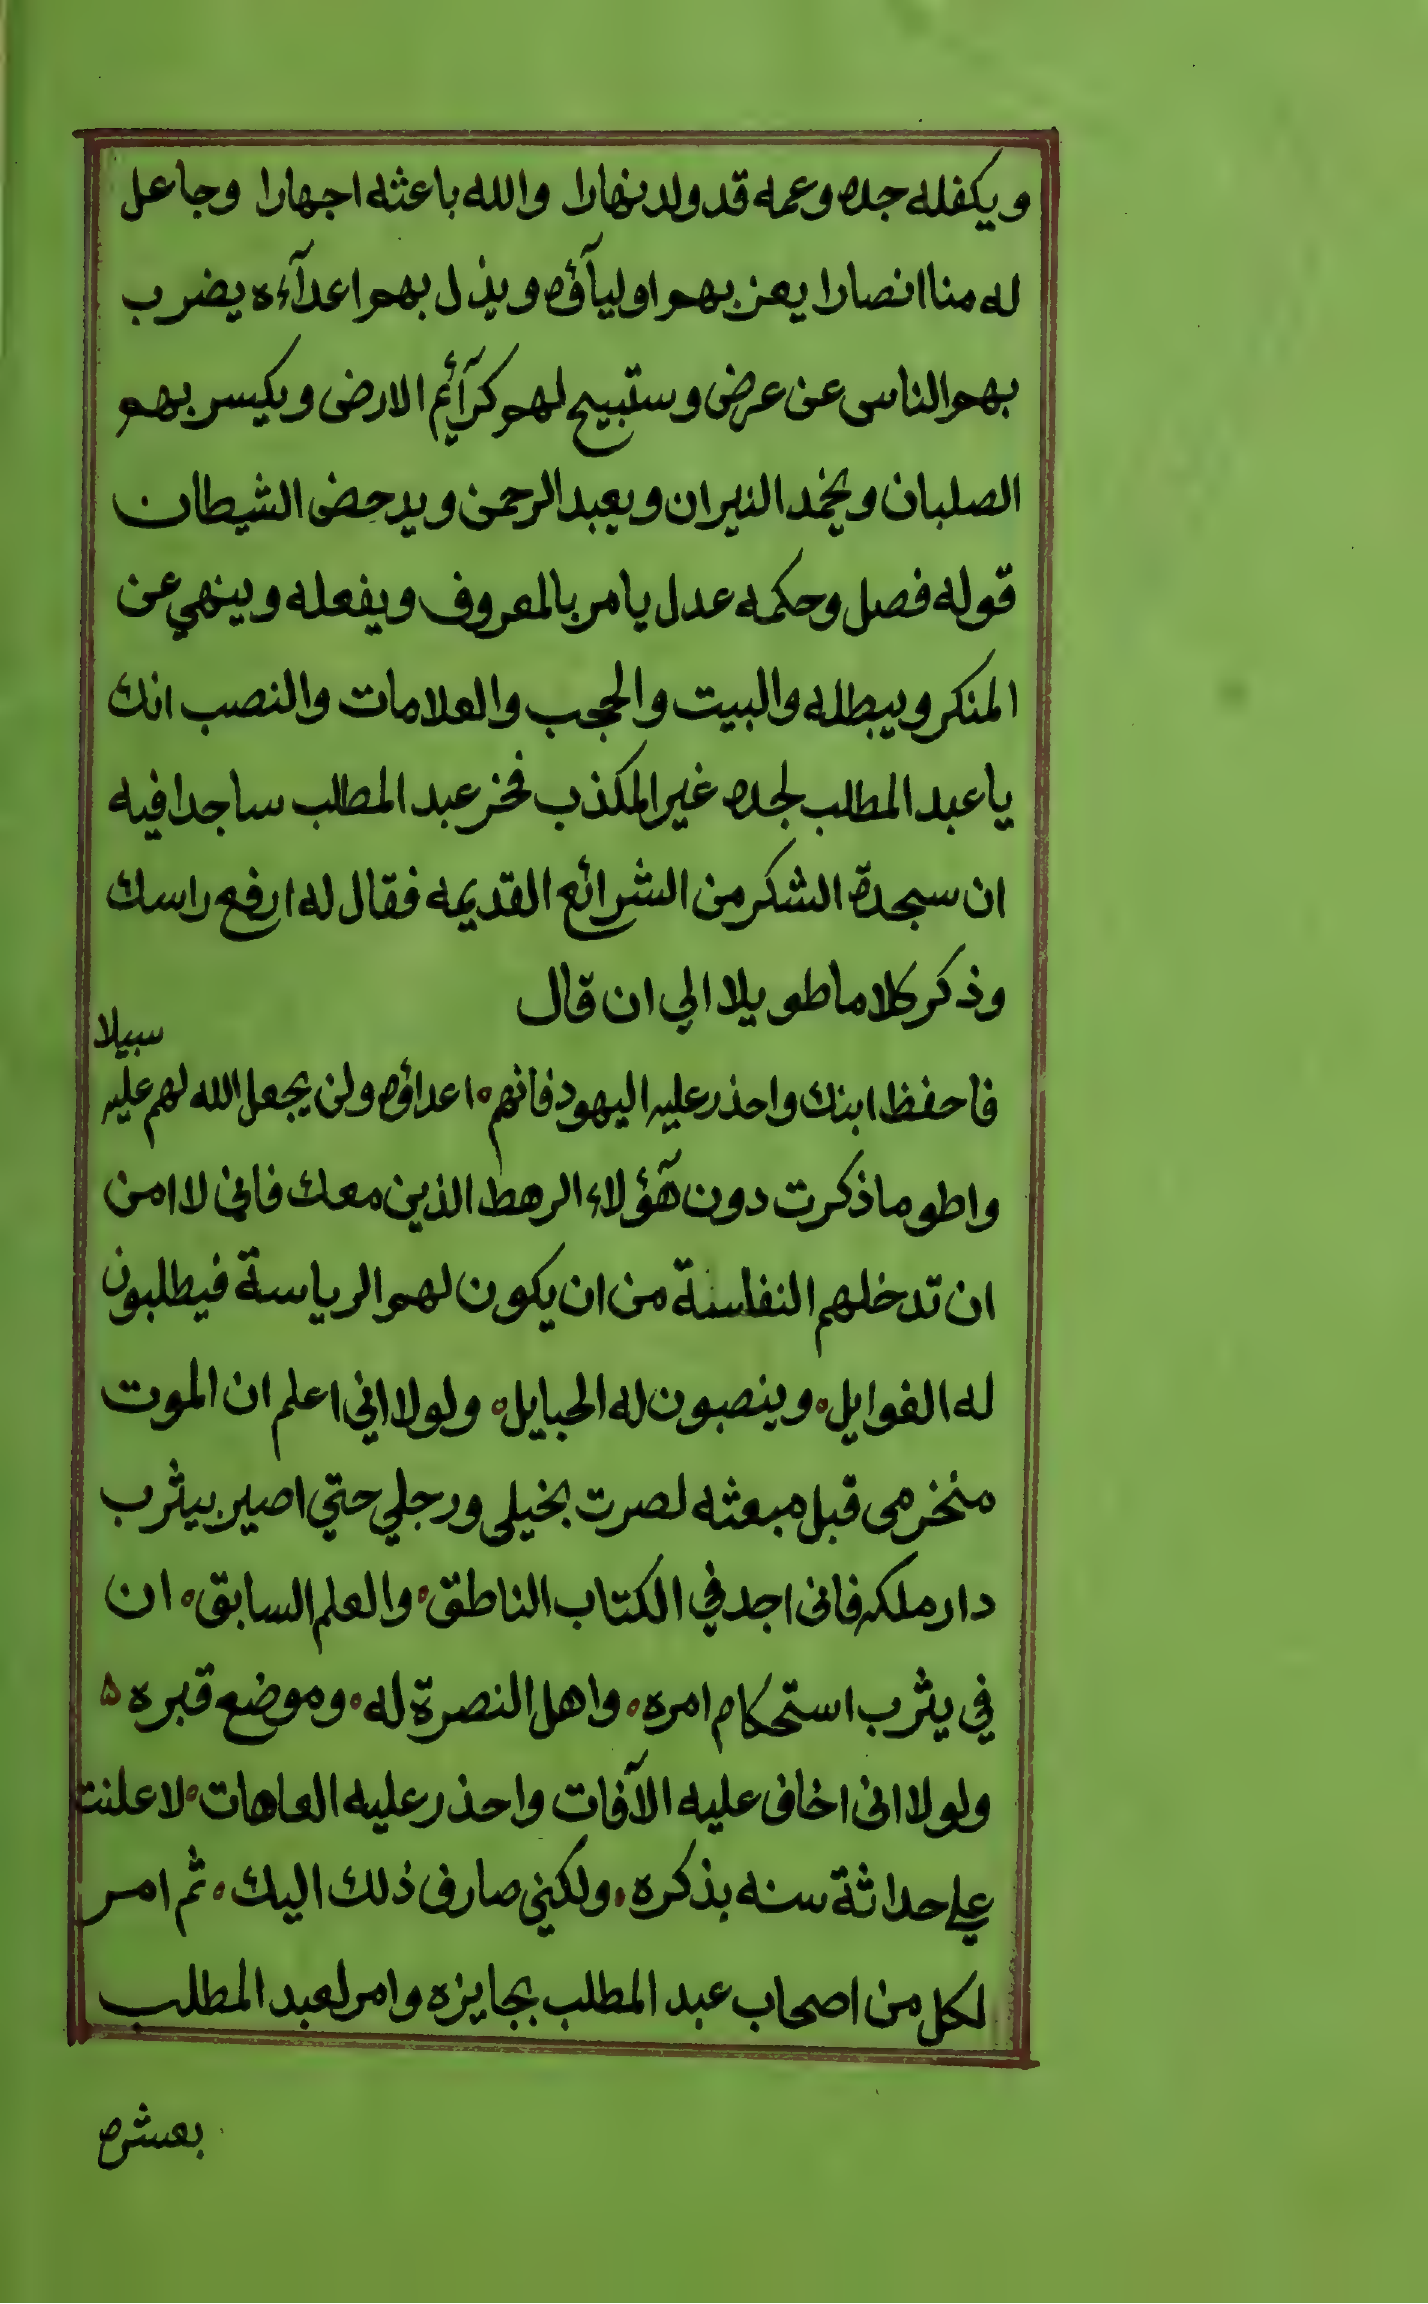 ويكفله جده وعمه قد ولد نهارا والله باعثه اجهارا وجاعل
له منا انصارا يعز بهم اوليآؤه ويذل بهم اعدآءه يضرب
بهم الناس عن عرض وستبيح لهم كرآئم الارض ويكسر بهم
الصلبان ويخمد النيران ويعبد الرحمن ويدحض الشيطان
قوله فصل وحكمه عدل يامر بالمعروف ويفعله وينهي عن
المنكر ويبطله والبيت والحجب والعلامات والنصب انك
يا عبد المطلب لجده غير المكذب فخر عبد المطلب ساجدا فيه
ان سجدة الشكر من الشرائع القديمه فقال له ارفع راسك
وذكر كلاما طويلا الي ان قال
سبيلا
فاحفظ ابنك واحذر عليه اليهود فانهم اعداؤه ولن يجعل الله لهم عليه
واطو ما ذكرت دون هآؤلاء الرهط الذين معك فاني لا امن
ان تدخلهم النفاسة من ان يكون لهم الرياسة فيطلبون
له الغوايل وينصبون له الحبايل ولولا اني اعلم ان الموت
منخرمي قبل مبعثه لصرت بخيلي ورجلي حتي اصير بيثرب
دار ملكه فاني اجد في الكتاب الناطق والعلم السابق ان
في يثرب استحكام امره واهل النصرة له وموضع قبره ۵
ولولا اني اخاف عليه الآفات واحذر عليه العاهات لاعلنت
علي حداثة سنه بذكره ولكني صارف ذلك اليك ثم امر
لكل من اصحاب عبد المطلب بجايزه وامر لعبد المطلب
بعشره